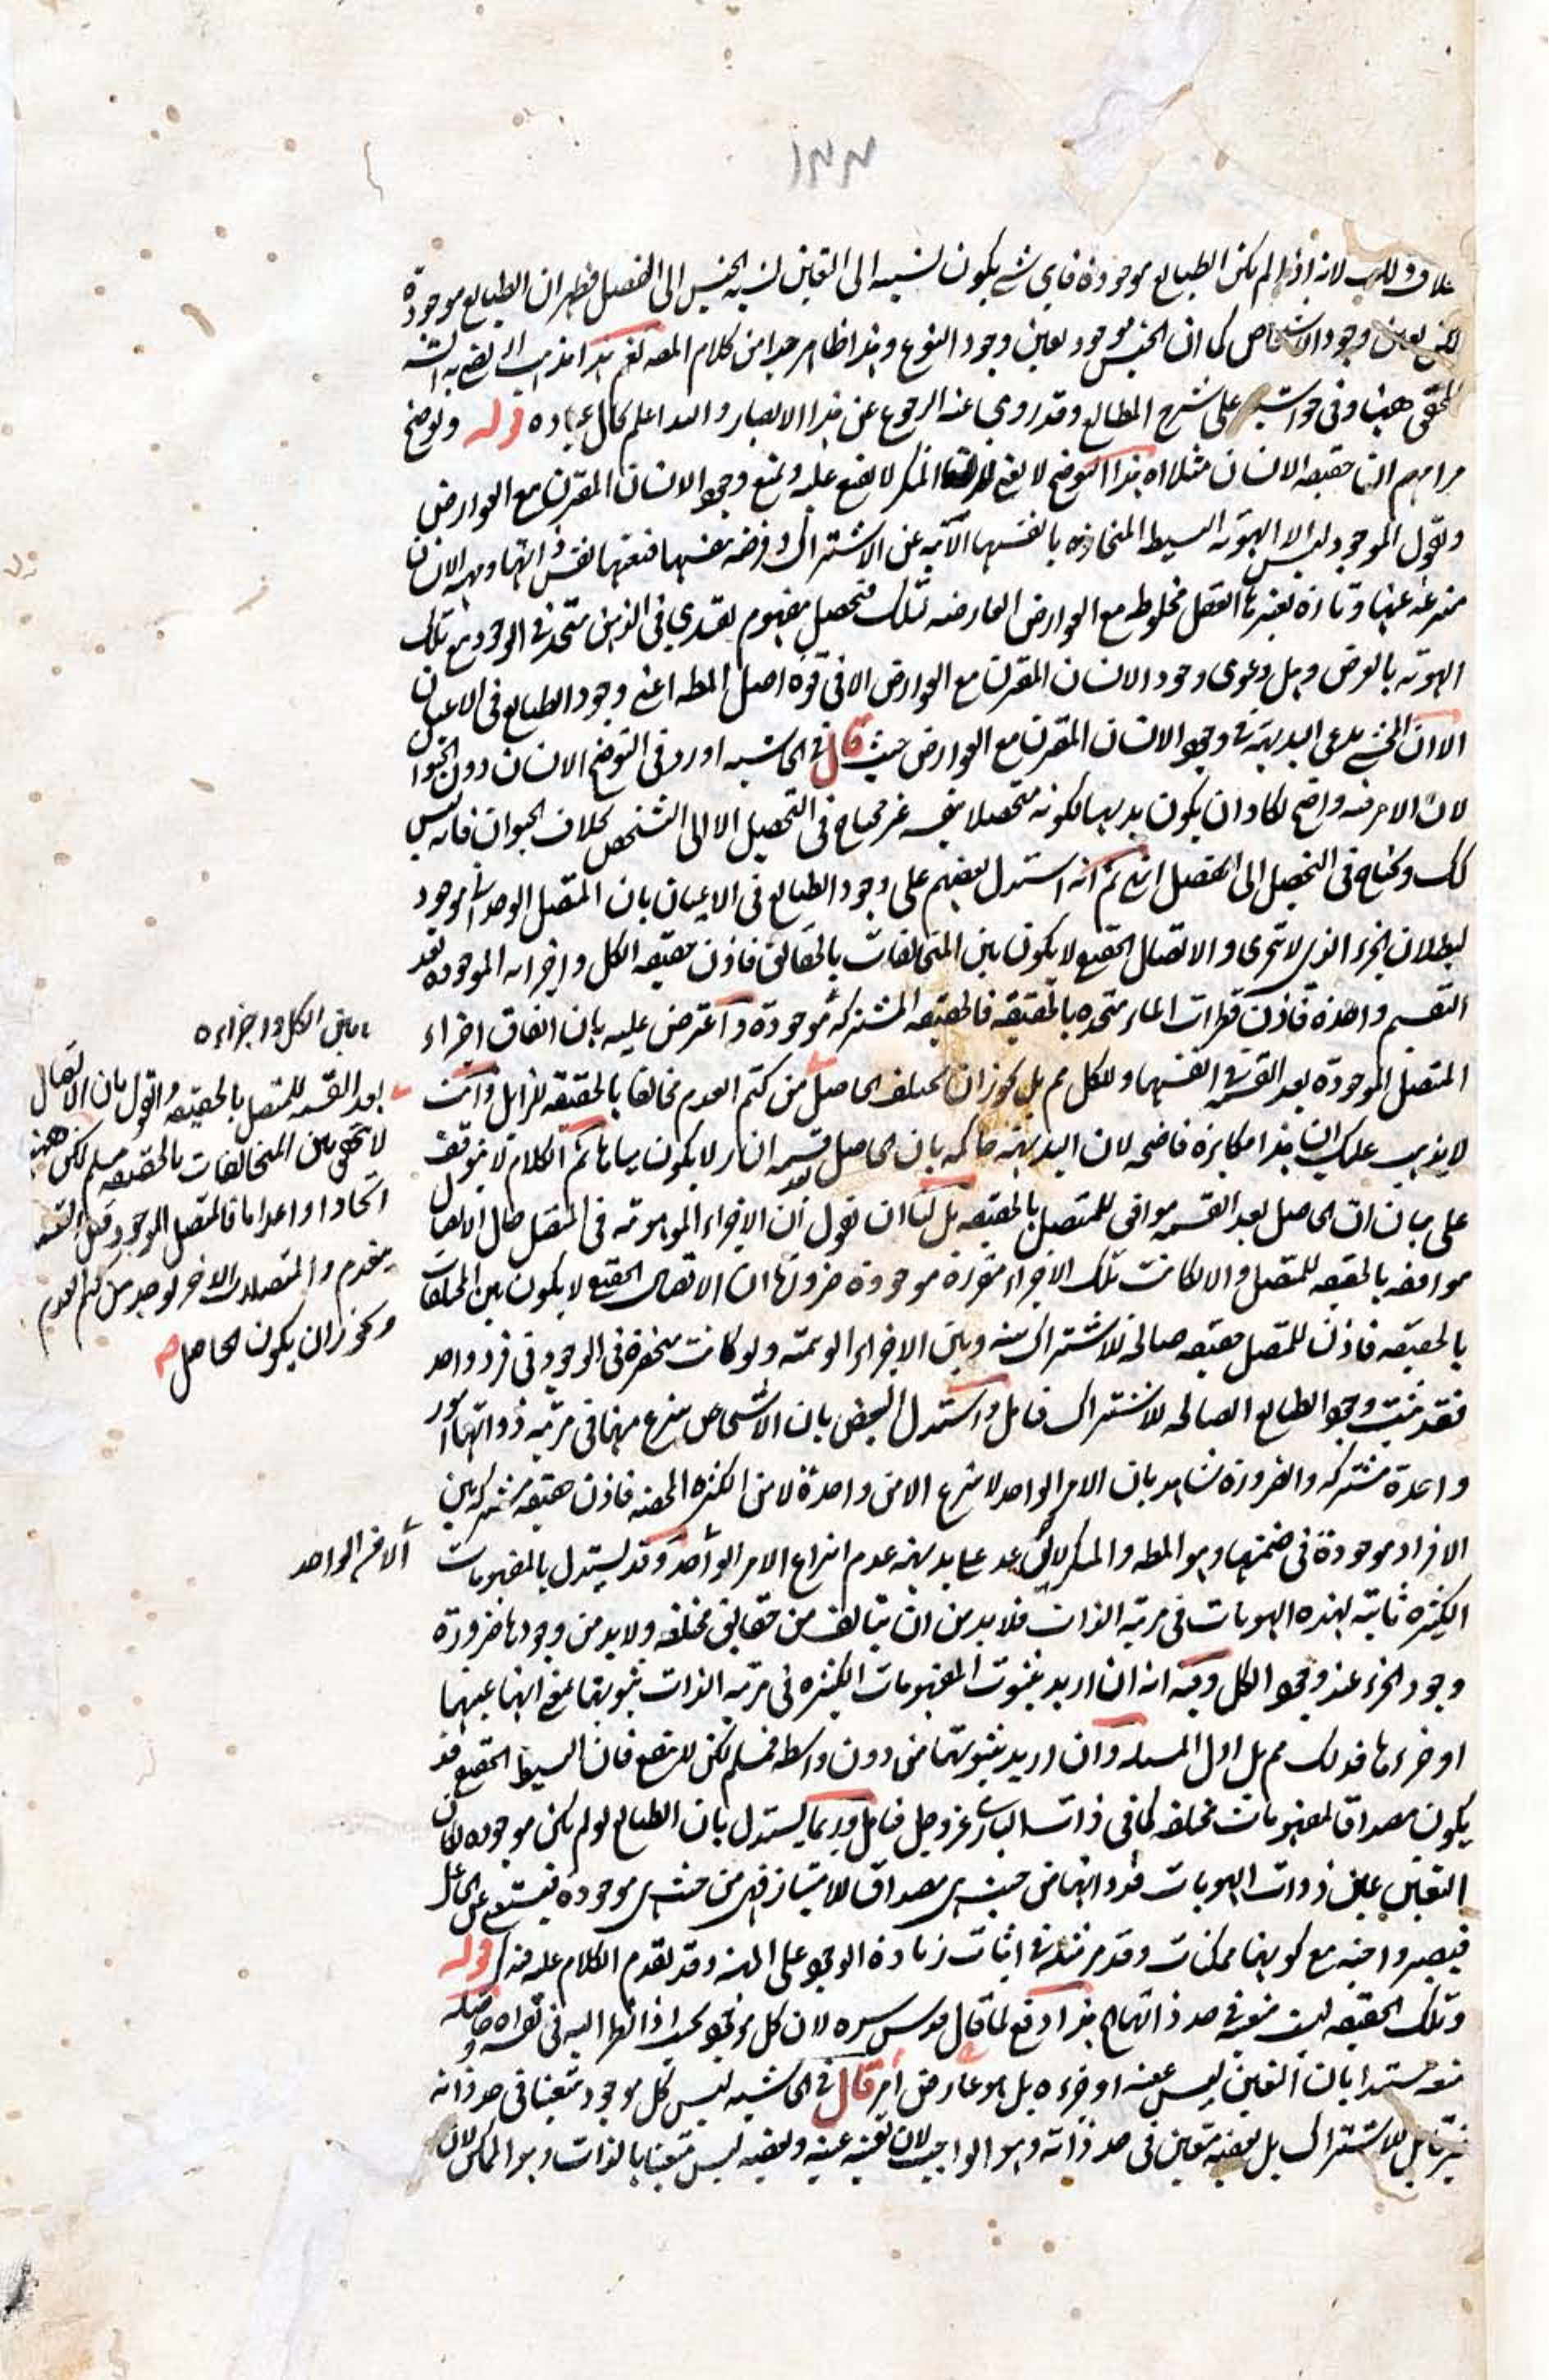 ١٣٣
لانه اذا لم يكن الطبايع موجودة فاى شئ يكون نسبته الى التعين نسبة الجنس الى الفصل فظهر ان الطبايع موجودة
لكن بعين وجود الاشخاص كما ان الجنس موجود بعين وجود النوع وهذا ظاهر جدا من كلام المص نعم هذا مذهب لم يرض به
المحقق ههنا وفى حواشيه على شرح المطالع وقد روى عنه الرجوع عن هذا الانكار والله اعلم بحال عباده قوله وتوضيح
مرامهم ان حقيقة الانسان مثلا اه هذا التوضيح لا يغنى المنكر لا يقنع عليه ويمنع وجود الانسان المقترن مع العوارض
ويقول الموجود ليس الا الهوية البسيطة المنحازة بانفسها الآبية عن الاشتراك وفرضه نفسها فتعينها نفس ذاتها ومهية الانسان
منتزعة عنها وتارة يعتبرها العقل مخلوطة مع العوارض العارضة لتلك فتحصل مفهوم تقييدى فى الذهن متحد فى الوجود مع تلك
الهوية بالعرض وهل دعوى وجود الانسان المقترن مع العوارض الا فى قوة اصل المط اعنى وجود الطبايع فى الاعيان
الا ان المحشى يدعى البديهة فى وجود الانسان المقترن مع العوارض حيث قال فى الحاشية اورد فى التوضيح الانسان دون الحيوان
لان الامر فيه واضح لكاد ان يكون بديهيا لكونه متحصلا بنفسه غير محتاج فى التحصيل الا الى التشخص بخلاف الحيوان فانه ليس
كك ويحتاج فى التحصيل الى الفصل انتهى ثم انه استدل بعضهم على وجود الطبايع فى الاعيان بان المتصل الوحدانى موجود
لبطلان الجزء الذى لا يتجزى والاتصال الحقيقى لا يكون بين المتخالفات بالحقائق فاذن حقيقة الكل واجزائه الموجودة بعد
التقسيم واحدة فاذن قطرات الماء متحدة بالحقيقة فالحقيقة المشتركة موجودة واعترض عليه بان اتفاق اجزاء
المتصل الموجودة بعد القسمة فى انفسها وللكل مم بل يجوز ان يختلف الحاصل من كتم العدم مخالفا بالحقيقة للزايل وانت
لا يذهب عليك ان هذا مكابرة فاضحة لان البديهة حاكمة بان الحاصل بعد قسمة النار لا يكون مياها ثم الكلام لا يتوقف
على بيان ان الحاصل بعد القسمة موافق للمتصل بالحقيقة بل لنا ان نقول ان الاجزاء الموهومة فى المتصل حال الاتصال
موافقة بالحقيقة للمتصل والا لكانت تلك الاجزاء متفرزة موجودة ضرورة ان الاتصال الحقيقى لا يكون بين المختلفات
بالحقيقة فاذن للمتصل حقيقة صالحة للاشتراك بينه وبين الاجزاء الوهمية ولو كانت منحصرة فى الوجود فى فرد واحد
فقد ثبت وجود الطبايع الصالحة للاشتراك فتامل واستدل البعض بان الاشخاص ينتزع منها فى مرتبة ذواتها امور
واحدة مشتركة والضرورة شاهدة بان الامر الواحد لا ينتزع الا من واحدة لا من الكثرة المحضة فاذن حقيقة مشتركة بين
الافراد موجودة فى ضمنها وهو المط والمنكر بديهة عدم انتزاع الامر الواحد وقد يستدل بالمفهومات
الكثيرة ثابتة لهذه الهويات فى مرتبة الذات فلا بد من ان يتالف من حقايق مختلفة ولا بد من وجودها ضرورة
وجود الجزء عند وجود الكل وفيه انه ان اريد بثبوت المفهومات الكثيرة فى مرتبة الذات ثبوتها بمعنى انها عينها
او جزءها فذلك مم بل اول المسئلة وان اريد بثبوتها من دون واسطة فمسلم لكن لا ينفع فان البسيط الحقيقى قد
يكون مصداقا لمفهومات مختلفة كما فى ذات البارى عز وجل فتامل وربما يستدل بان الطبايع لو لم يكن موجودة لكان
التعين عين ذوات الهويات فذواتها من حيث هى مصداق للامتياز فهى من حيث هى موجودة فيستغنى عن الجاعل
فيصير واجبة مع كونها ممكنات وقد مر مثله فى اثبات زيادة الوجود على المهية وقد تقدم الكلام عليه فتذكر قوله
وتلك الحقيقة ليست متعينة فى حد ذاتها اه هذا دفع لما قال قدس سره لان كل موجود بحيث اذا نظر اليه فى نفسه اه وحاصله
منعه مستندا بان التعين ليس عينه او جزءه بل هو عارض امر قال فى الحاشية ليس كل موجود متعينا فى حد ذاته
غير قابل للاشتراك بل بعضه متعين فى حد ذاته وهو الواجب لان تعينه عينه وبعضه ليس متعينا بالذات وهو الممكن لان
ما بين الكل واجزاءه
بعد القسمة للمتصل بالحقيقة والقول بان الاتصال
لا يتحقق بين المتخالفات بالحقيقة مسلم لكن ههنا
اتحادا واعداما فالمتصل الموجود قبل القسمة
ينعدم والمتصلان الاخر يوجد من كتم العدم
ويجوز ان يكون الحاصل
الا من الواحد